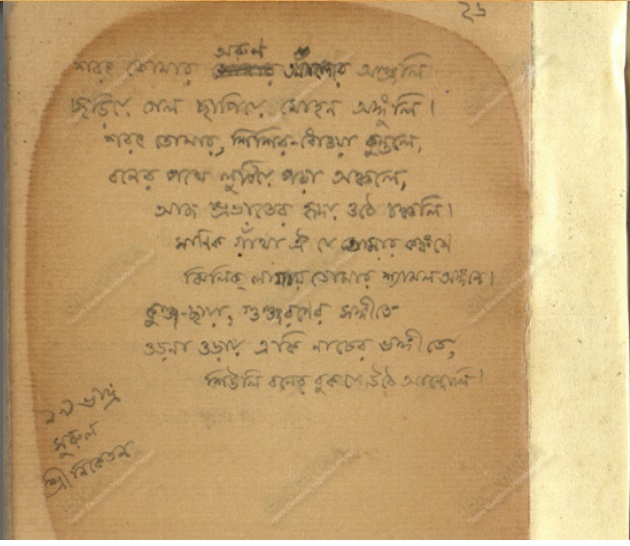 ২৬
শরৎ তোমার অরুণ আলোর অঞ্জলি
ছড়িয়ে গেল ছাপিয়ে মোহন অঙ্গুলি।
শরৎ তোমার, শিশির-ধোওয়া কুন্তলে,
বনের পথে লুটিয়ে পড়া অঞ্চলে,
আজ প্রভাতের হৃদয় ওঠে চঞ্চলি।
মানিক গাঁথা ঐ যে তোমার কঙ্কণে
ঝিলিক লাগায় তোমার শ্যামল অঙ্গনে।
কুঞ্জ-ছায়া, গুঞ্জরণের সঙ্গীতে
ওড়না ওড়ায় একি নাচের ভঙ্গীতে,
শিউলি বনের বুক যে উঠে আন্দোলি।
১৯ ভাদ্র
সুরুল
শ্রীনিকেতন